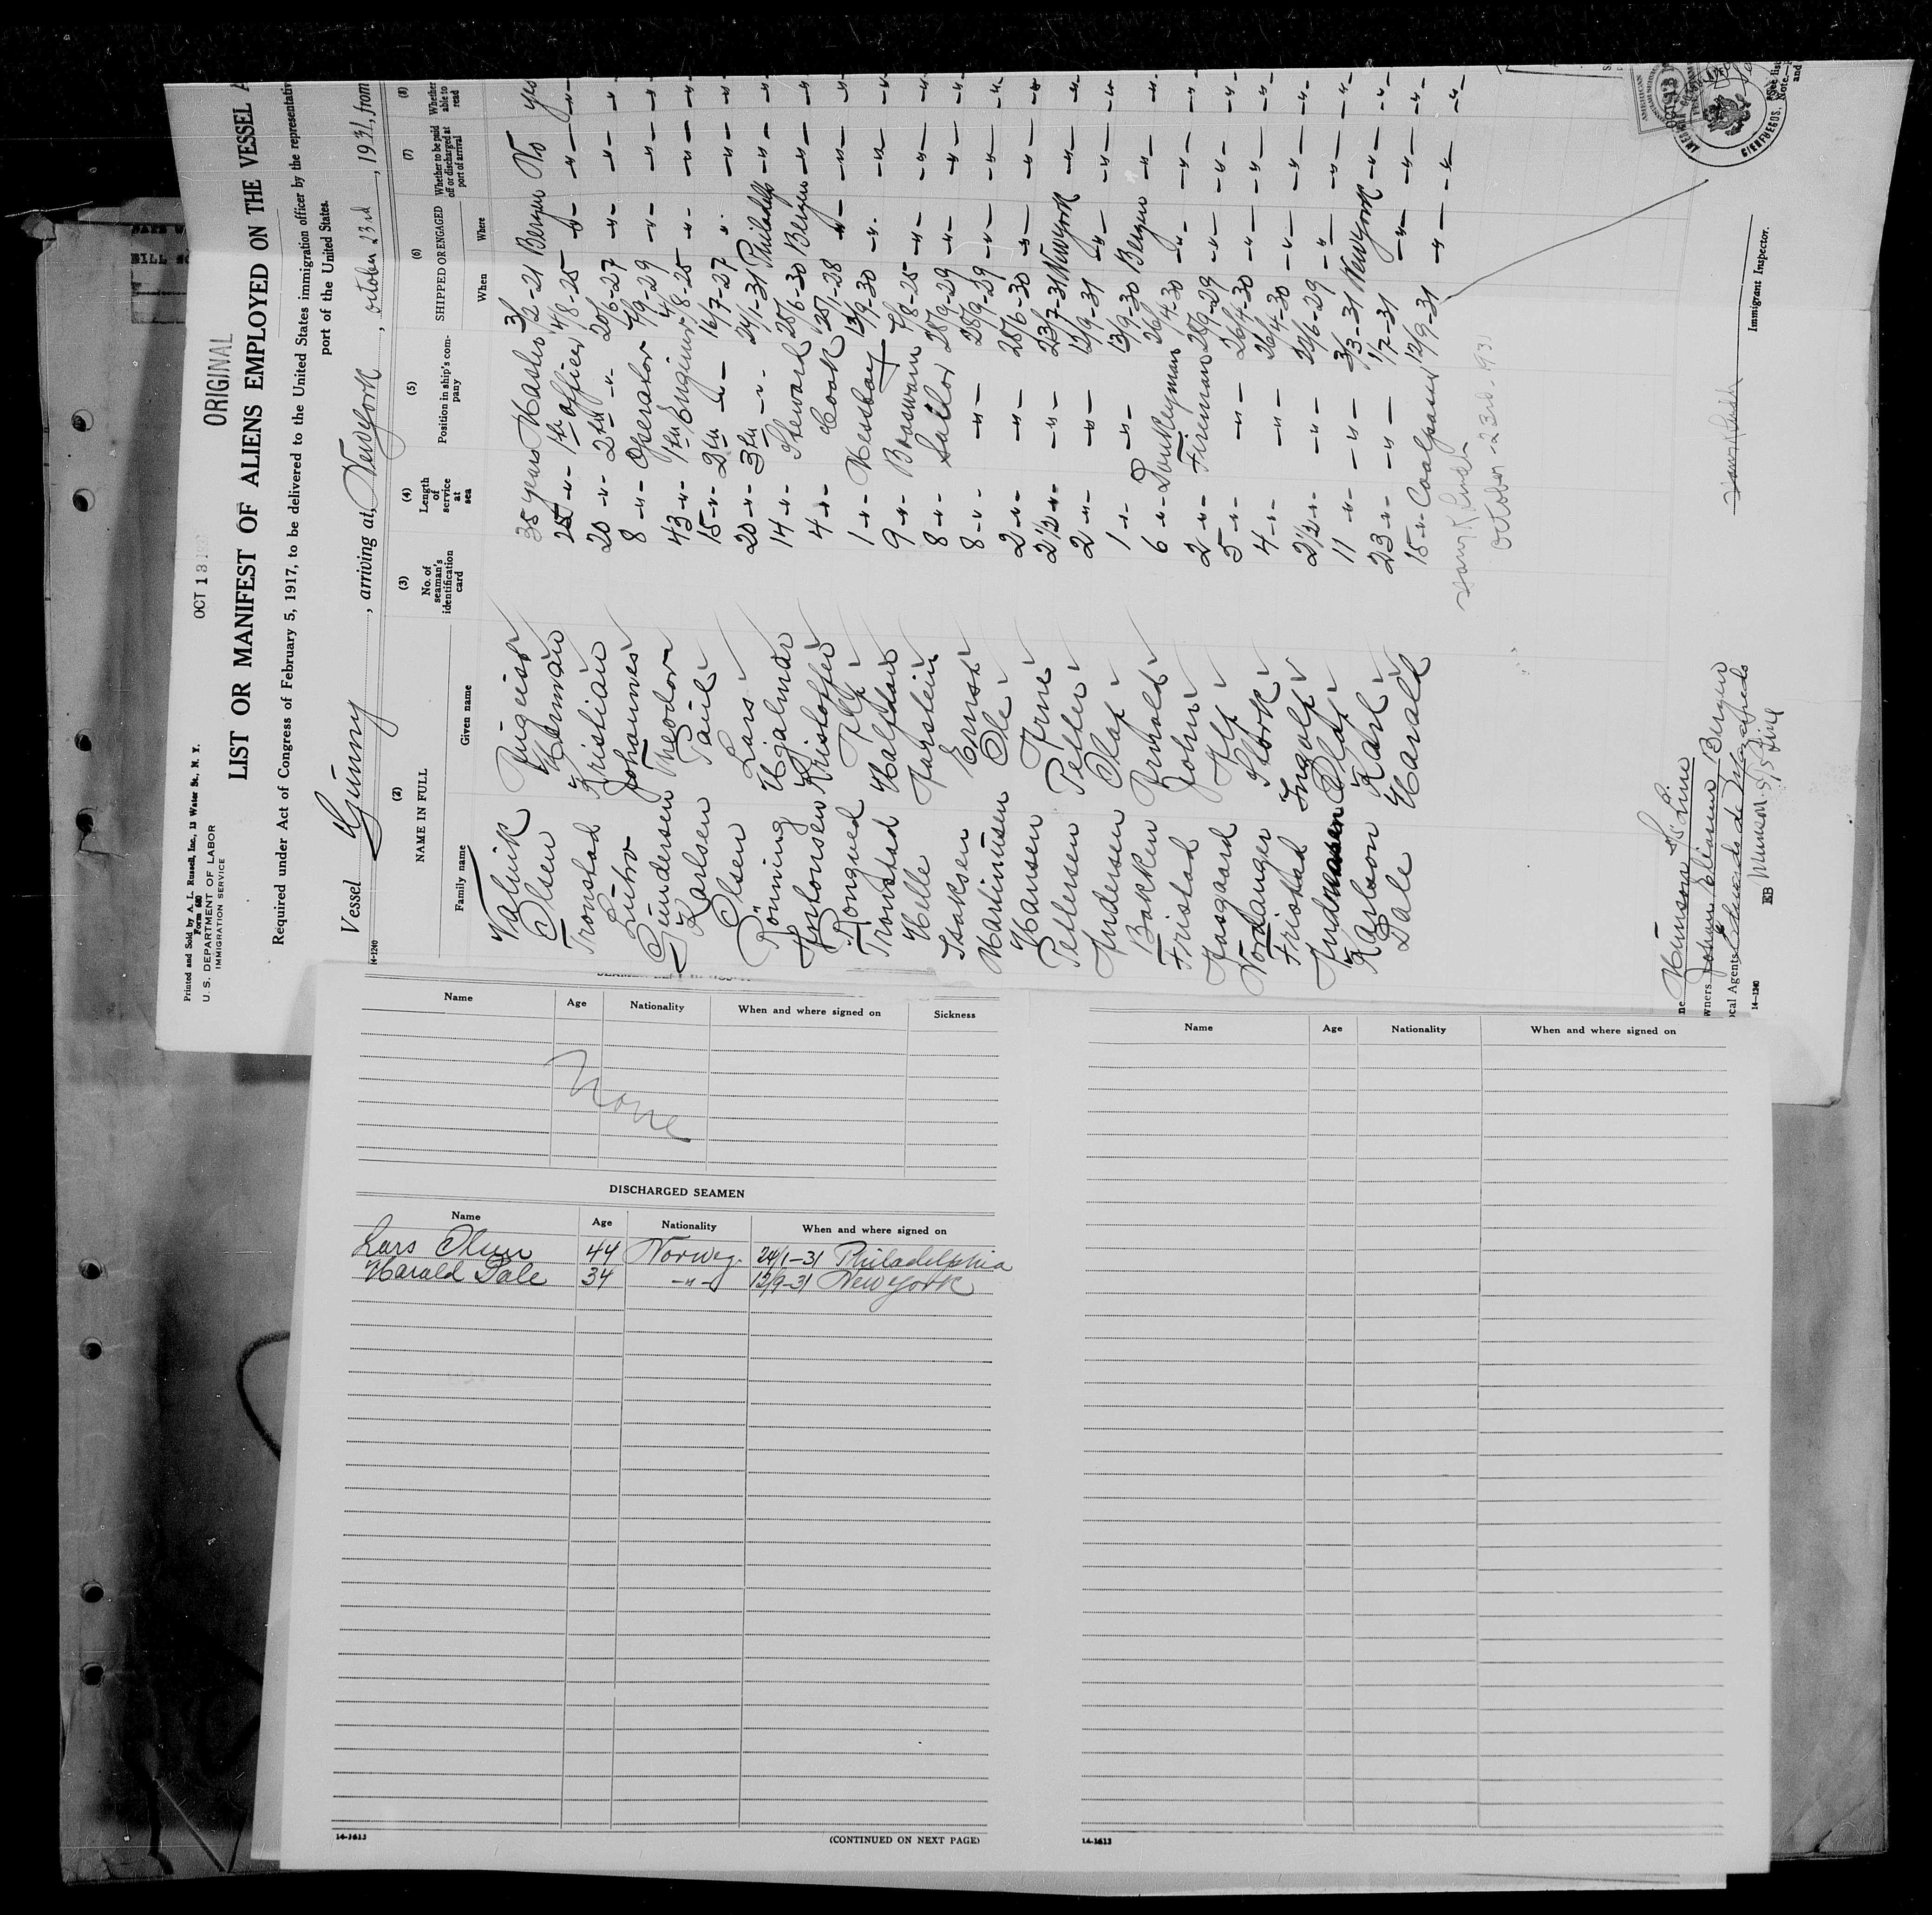 Printed and Sold by A. L. Russell, Inc., 13 Water St., N. Y.
Form 680
U. S. DEPARTMENT OF LABOR
IMMIGRATION SERVICE
OCT 13
ORIGINAL
LIST OR MANIFEST OF ALIENS EMPLOYED ON THE VESSEL A
Required under Act of Congress of February 5, 1917, to be delivered to the United States immigration officer by the representative
port of the United States.
Vessel Gunny, arriving at Newyork, October 23rd, 1931, from
14-1240
(2) (3) (4) (5) (6) (7) (8)
NAME IN FULL No. of seaman's identification card Length of service at sea Position in ship's company SHIPPED OR ENGAGED Whether to be paid off or discharged at port of arrival Whether able to read
Family name Given name When Where
Valvik 35 years Master 3/2-21 Bergen No yes
Olsen Herman 25 -"- 1th officer 4/8-25 -"- -"- -"-
Tronstad Kristian 20 -"- 2th -"- 20/6-27 -"- -"- -"-
Lutro Johannes 8 -"- Operator 4/9-29 -"- -"- -"-
Gundersen Theodor 43 -"- 1th Engineer 4/8-25 -"- -"- -"-
Karlsen Paul 15 -"- 2th -"- 16/7-27 -"- -"- -"-
Olsen Lars 20 -"- 3th -"- 24/1-31 Philadelp -"- -"-
Rönning Hjalmar 14 -"- Steward 28/6-30 Bergen -"- -"-
Antonsen Kristoffer 4 -"- Cook 25/1-28 -"- -"- -"-
Rongved Alf 1 -"- Messboy 13/9-30 -"- -"- -"-
Tronstad Halfdan 9 -"- Boaswain 4/8-25 -"- -"- -"-
Helle Aarstein 8 -"- Sailor 28/9-29 -"- -"- -"-
Isaksen Ernst 8 -"- -"- 28/9-29 -"- -"- -"-
Martinusen Ole 2 -"- -"- 28/6-30 -"- -"- -"-
Hansen Arne 2 1/2 -"- -"- 23/7-31 Newyork -"- -"-
Pettersen Petter 2 -"- -"- 12/9-31 -"- -"- -"-
Andersen Olaf 1 -"- -"- 13/9-30 Bergen -"- -"-
Bakken Arnold 6 -"- Donkeyman 26/4-30 -"- -"- -"-
Fristad John 2 -"- Fireman 28/9-29 -"- -"- -"-
Aasgaard Alf 5 -"- -"- 26/4-30 -"- -"- -"-
Nordanger Stork 4 -"- -"- 26/4-30 -"- -"- -"-
Fristad Ingolf 2 1/2 -"- -"- 22/6-29 -"- -"- -"-
Andreassen Olaf 11 -"- -"- 3/3-31 Newyork -"- -"-
Karlson Karl 23 -"- -"- 1/7-31 -"- -"- -"-
Dale Harald 15 -"- Coalpasser 12/9-31 -"- -"- -"-
October - 23rd - 931
Immigrant Inspector.
Munson SS. Line
wners Johan Eliesen Bergen
ocal Agents
Munson S/S Line
14-1240
CIENFUEGOS.
Note.—
Name Age Nationality When and where signed on Sickness
None
DISCHARGED SEAMEN
Name Age Nationality When and where signed on
Lars Olsen 44 Norweg. 24/1-31 Philadelphia
Harald Dale 34 -"- 12/9-31 Newyork
14-1613
(CONTINUED ON NEXT PAGE)
Name Age Nationality When and where signed on
14-1613